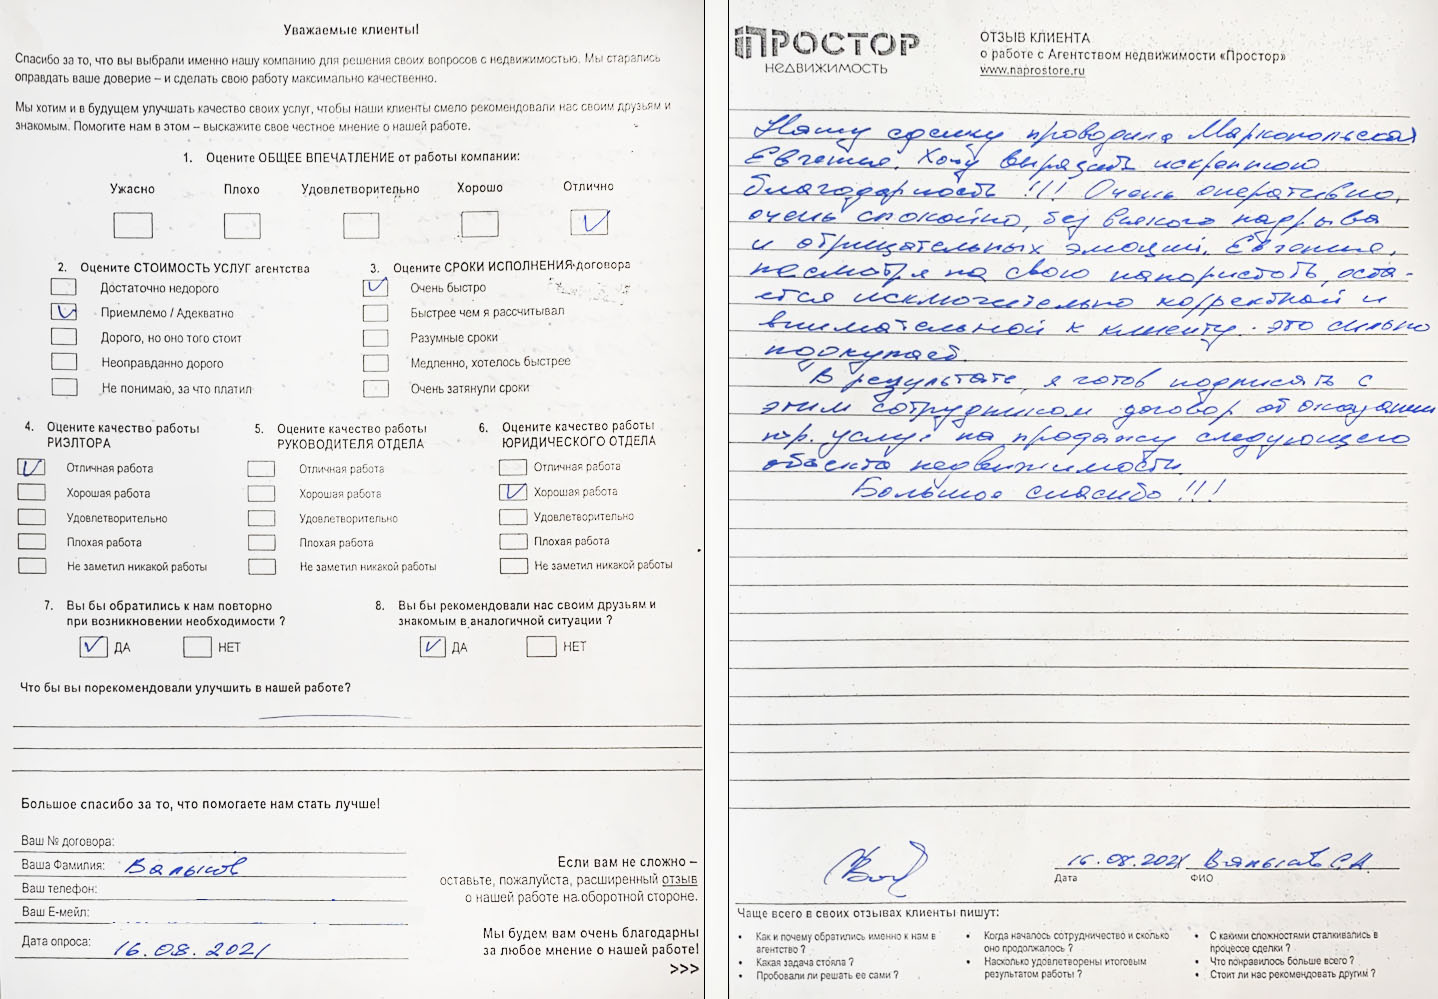 Уважаемые клиенты!
Спасибо за то, что вы выбрали именно нашу компанию для решения своих вопросов с недвижимостью. Мы старались
оправдать ваше доверие – и сделать свою работу максимально качественно.
Мы хотим и в будущем улучшать качество своих услуг, чтобы наши клиенты смело рекомендовали нас своим друзьям и
знакомым. Помогите нам в этом – выскажите свое честное мнение о нашей работе.
1. Оцените ОБЩЕЕ ВПЕЧАТЛЕНИЕ от работы компании:
Ужасно Плохо Удовлетворительно Хорошо Отлично
2. Оцените СТОИМОСТЬ УСЛУГ агентства
Достаточно недорого
Приемлемо / Адекватно
Дорого, но оно того стоит
Неоправданно дорого
Не понимаю, за что платил
3. Оцените СРОКИ ИСПОЛНЕНИЯ договора
Очень быстро
Быстрее чем я рассчитывал
Разумные сроки
Медленно, хотелось быстрее
Очень затянули сроки
4. Оцените качество работы
РИЭЛТОРА
Отличная работа
Хорошая работа
Удовлетворительно
Плохая работа
Не заметил никакой работы
5. Оцените качество работы
РУКОВОДИТЕЛЯ ОТДЕЛА
Отличная работа
Хорошая работа
Удовлетворительно
Плохая работа
Не заметил никакой работы
6. Оцените качество работы
ЮРИДИЧЕСКОГО ОТДЕЛА
Отличная работа
Хорошая работа
Удовлетворительно
Плохая работа
Не заметил никакой работы
7. Вы бы обратились к нам повторно
при возникновении необходимости ?
ДА НЕТ
8. Вы бы рекомендовали нас своим друзьям и
знакомым в аналогичной ситуации ?
ДА НЕТ
Что бы вы порекомендовали улучшить в нашей работе?
Большое спасибо за то, что помогаете нам стать лучше!
Ваш № договора:
Ваша Фамилия:
Ваш телефон:
Ваш Е-мейл:
Дата опроса: 16.08.2021
Если вам не сложно –
оставьте, пожалуйста, расширенный отзыв
о нашей работе на оборотной стороне.
Мы будем вам очень благодарны
за любое мнение о нашей работе!
>>>
ПРОСТОР
НЕДВИЖИМОСТЬ
ОТЗЫВ КЛИЕНТА
о работе с Агентством недвижимости «Простор»
www.naprostore.ru
Нашу сделку проводила Маркопольская
Евгения. Хочу выразить искреннюю
благодарность !!! Очень оперативно,
очень спокойно, без всякого надрыва
и отрицательных эмоций. Евгения,
несмотря на свою напористость, оста-
ется исключительно корректной и
внимательной к клиенту - это сильно
подкупает.
В результате, я готов подписать с
этим сотрудником договор об оказании
юр. услуг на продажу следующего
объекта недвижимости.
Большое спасибо !!!
16.08.2021 С.А.
Дата ФИО
Чаще всего в своих отзывах клиенты пишут:
• Как и почему обратились именно к нам в
агентство ?
• Какая задача стояла ?
• Пробовали ли решать ее сами ?
• Когда началось сотрудничество и сколько
оно продолжалось ?
• Насколько удовлетворены итоговым
результатом работы ?
• С какими сложностями сталкивались в
процессе сделки ?
• Что понравилось больше всего ?
• Стоит ли нас рекомендовать другим ?